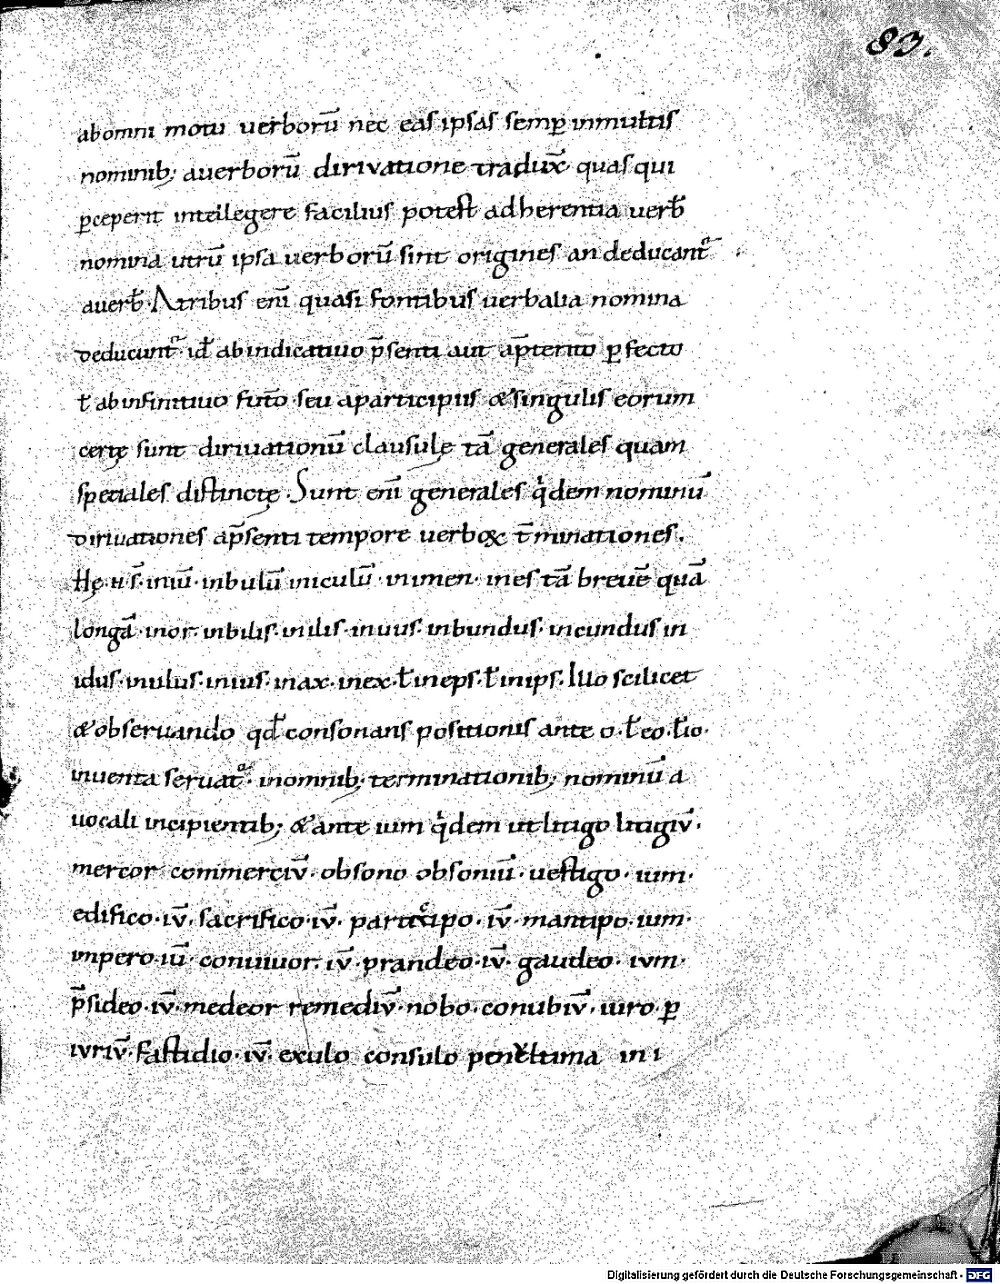 83.
abomni motu uerborū nec eas ipsas semꝑ inmultis
nominib; auerborū dirivatione tradux̄ quas qui
ꝑceperit intellegere facilius potest adherentia uerƀ
nomina utrū ipsa uerborū sint origines an deducant᷑
auerƀ. Atribus eni̅ quasi fontibus uerbalia nomina
deducunt᷑ id̅ abindicatiuo p̄senti aut ap̄terito ꝑfecto
ł abinfinitiuo fut̄o seu aparticipiis & singulis eorum
certę sunt diriuationū clausulę tā generales quam
speciales distinctę. Sunt eni̅ generales qͥdem nominū
diriuationes ap̄senti tempore uerboꝝ t̄minationes.
Hę· iniū· inbulū iniculū· inimen· ines tā breuē quā
longā· inor· inbilis· inilis· inuus· inbundus· incundus in
idus· inulus· inius· inax· inex· ł ineps· ł inips· Illo scilicet
& obseruando qd̄ consonans positionis ante o· ł eo· ł io·
inuenta seruat᷑· inomnib; terminationib; nominū a
uocali incipientib; & ante ium qͥdem ut litigo litigiū·
mercor commerciū· obsono obsoniū· uestigo· ium·
edifico· iū· sacrifico· iū· participo· iū· mancipo· ium·
impero· iū· conuiuor· iū· prandeo· iū· gaudeo· ium·
p̄sideo· iū· medeor remediū· nobo· conubiū· iuro· ꝑ
iuriū· fastidio· iū· exulo consulo penultima in i
Digitalisierung gefördert durch die Deutsche Forschungsgemeinschaft - DFG